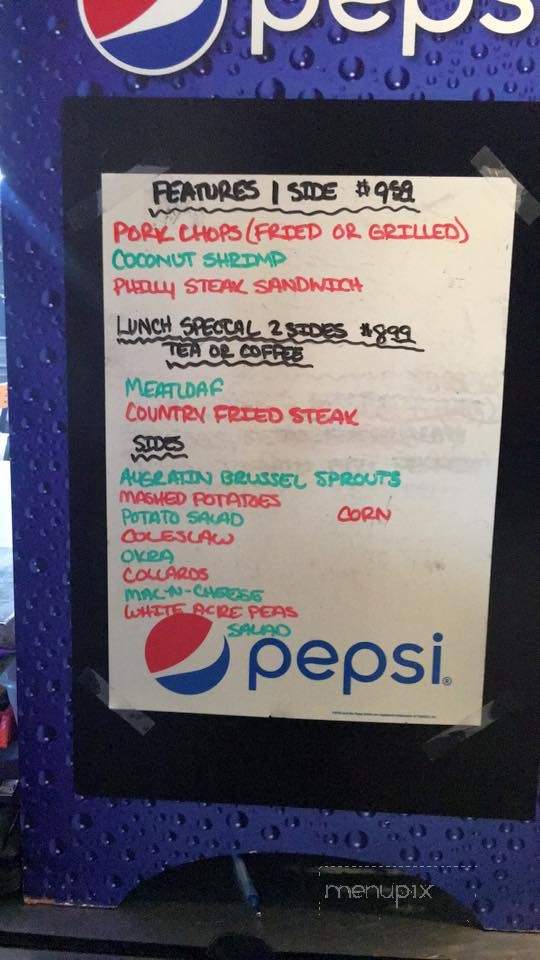 pepsi
FEATURES 1 SIDE $9.59
PORK CHOPS (FRIED OR GRILLED)
COCONUT SHRIMP
PHILLY STEAK SANDWICH
LUNCH SPECIAL 2 SIDES $8.99
TEA OR COFFEE
MEATLOAF
COUNTRY FRIED STEAK
SIDES
AUGRATIN BRUSSEL SPROUTS
MASHED POTATOES
POTATO SALAD CORN
COLESLAW
OKRA
COLLARDS
MAC-N-CHEESE
WHITE ACRE PEAS
SALAD
pepsi®
menupix